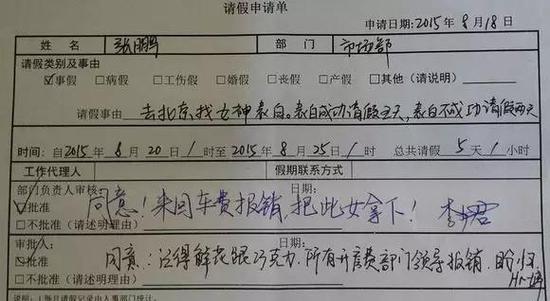 请假申请单
申请日期:2015年8月18日
姓名 张鹏鹏 部门 市场部
请假类别及事由
☑事假 □病假 □工伤假 □婚假 □丧假 □产假 □其他（请说明）
请假事由 去北京找女神表白。表白成功请假五天，表白不成功请假两天
时间：自2015年8月20日1时至2015年8月25日1时 总共请假 5 天 1 小时
工作代理人 假期联系方式
部门负责人审核: 日期:
☑批准 同意！来回车费报销，把此女拿下！李君
□不批准（请述明理由）
审批人: 日期:
☑批准 同意：记得鲜花跟巧克力，所有开房费部门领导报销，盼归
□不批准（请述明理由）